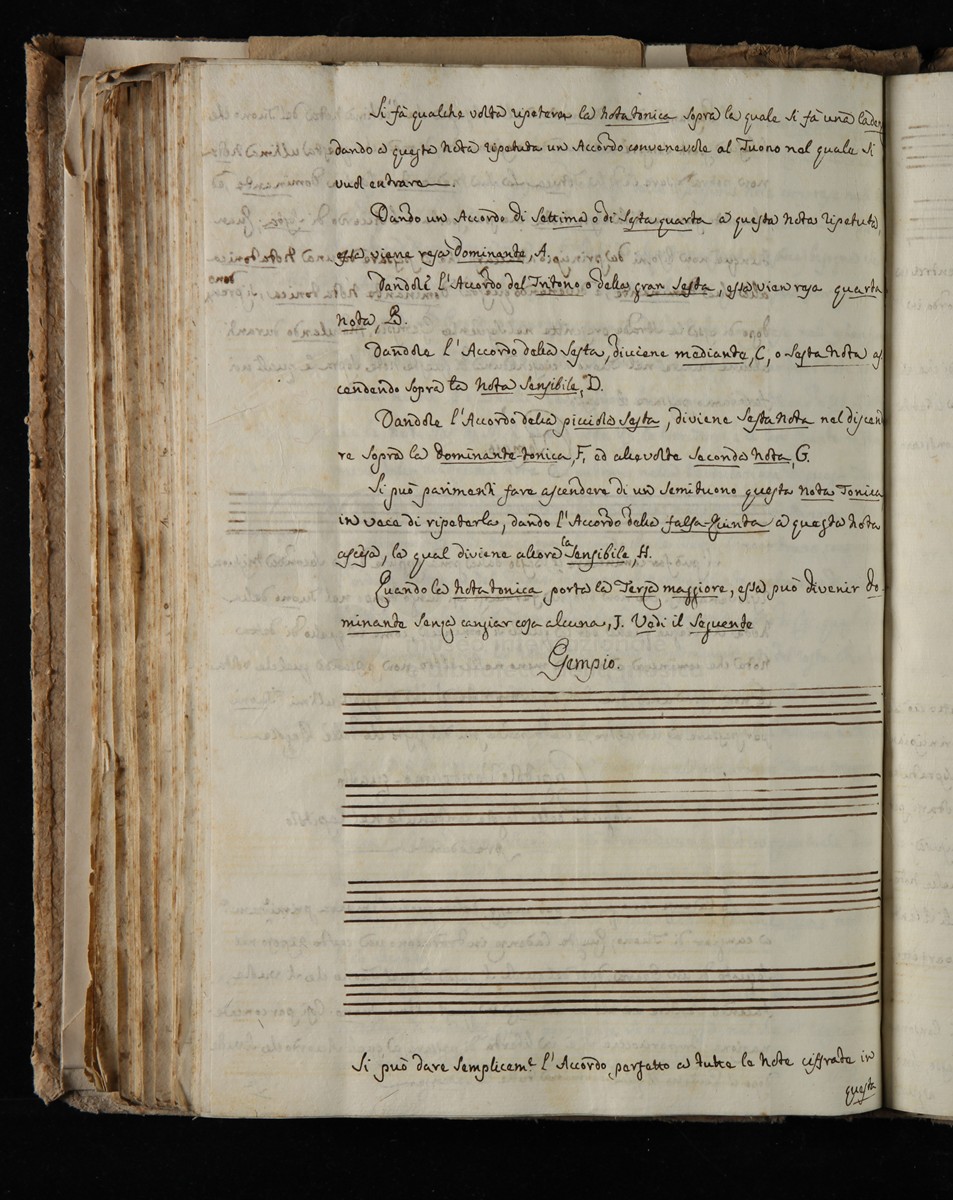 Si fà qualche volta ripeter la nota tonica sopra la quale si fà una caden
dando a questa nota ripetuta un Accordo convenevole al Tuono nel quale si
vuol entrare.
Dando un Accordo di Settima o di Sesta quarta a questa nota ripetuta,
essa viene resa Dominante, A.
Dandole l'Accordo del Tritono, o della gran Sesta, essa vien resa quarta
nota, B.
Dandole l'Accordo della Sesta, diviene mediante, C, o Sesta nota as
cendendo sopra la Nota Sensibile, D.
Dandole l'Accordo della picciola Sesta, diviene Sesta Nota nel discen
re sopra la Dominante-tonica, F, ed alle volte Seconda Nota, G.
Si può parimenti fare ascendere di un Semituono questa nota Tonica
in vece di ripeterla, dando l'Accordo della falsa-Quinta a questa nota
ascesa, la qual diviene allora la Sensibile, H.
Quando la nota tonica porta la Terza maggiore, essa può divenir Do
minante senza cangiar cosa alcuna, J. Vedi il Seguente
Esempio.
Si può dare semplicem.te l'Accordo perfetto a tutte le note ciffrate in
questa